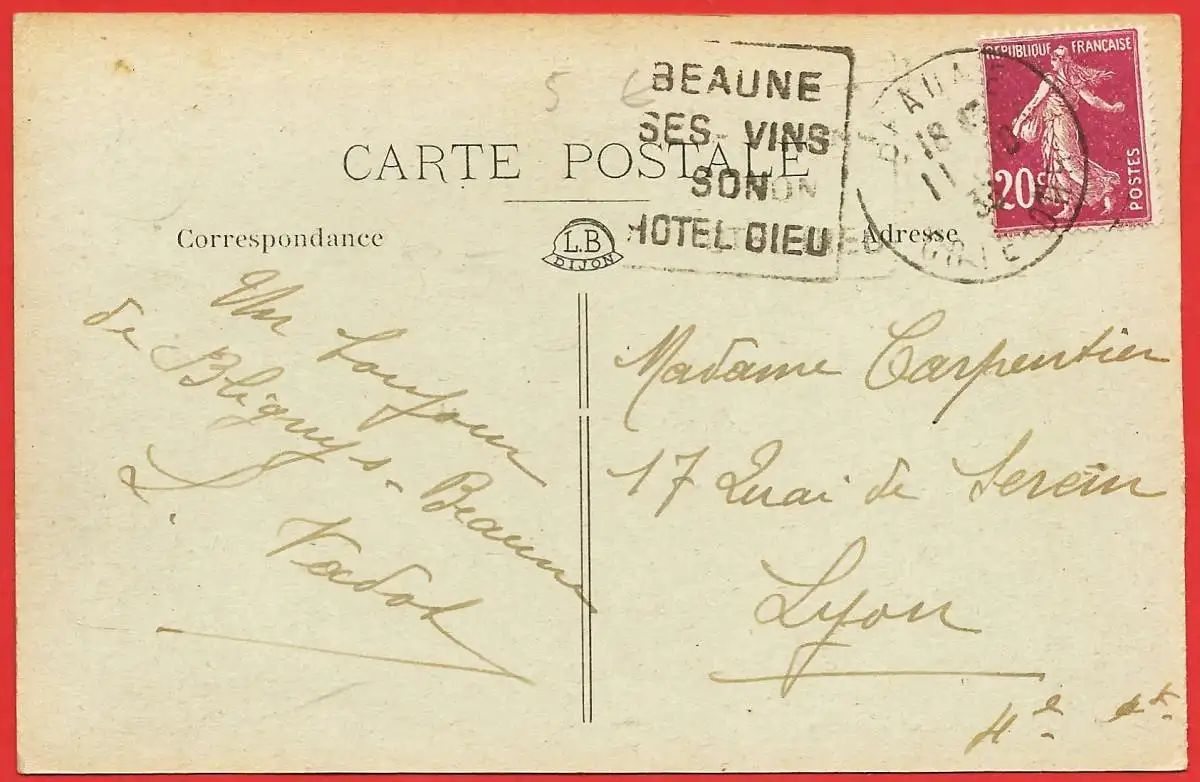 5 €
BEAUNE
SES VINS
SON
HOTEL DIEU
BEAUNE
18
11
32
CÔTE D'OR
REPUBLIQUE FRANÇAISE
20c
POSTES
CARTE POSTALE
Correspondance
L.B
DIJON
Adresse
Un bonjour
de Bligny-s-Beaune
L.
Vadot
Madame Carpentier
17 Quai de Serein
Lyon
4e